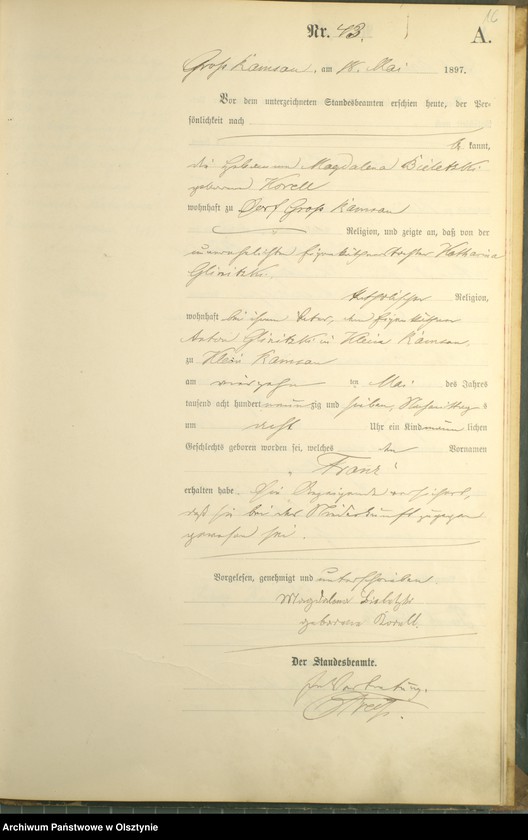 16
Nr. 43.
A.
Groß Kamsau, am 18. Mai 1897.
Vor dem unterzeichneten Standesbeamten erschien heute, der Per-
sönlichkeit nach
be kannt,
die Hebamme Magdalena Bieletzki
geborene Korell
wohnhaft zu Dorf Groß Kamsau
Religion, und zeigte an, daß von der
unverehelichten Eigenkäthnertochter Katharina
Glinitzki
katholischer Religion,
wohnhaft bei ihrem Vater, dem Eigenkäthner
Anton Glinitzki in Klein Kamsau,
zu Klein Kamsau
am vierzehn ten Mai des Jahres
tausend acht hundert neunzig und sieben, Nachmittags
um acht Uhr ein Kind männ lichen
Geschlechts geboren worden sei, welches den Vornamen
Franz
erhalten habe. Die Anzeigende versichert,
daß sie bei der Niederkunft zugegen
gewesen sei.
Vorgelesen, genehmigt und unterschrieben.
Magdalena
geborene Korell.
Der Standesbeamte.
In Vertretung.
Archiwum Państwowe w Olsztynie